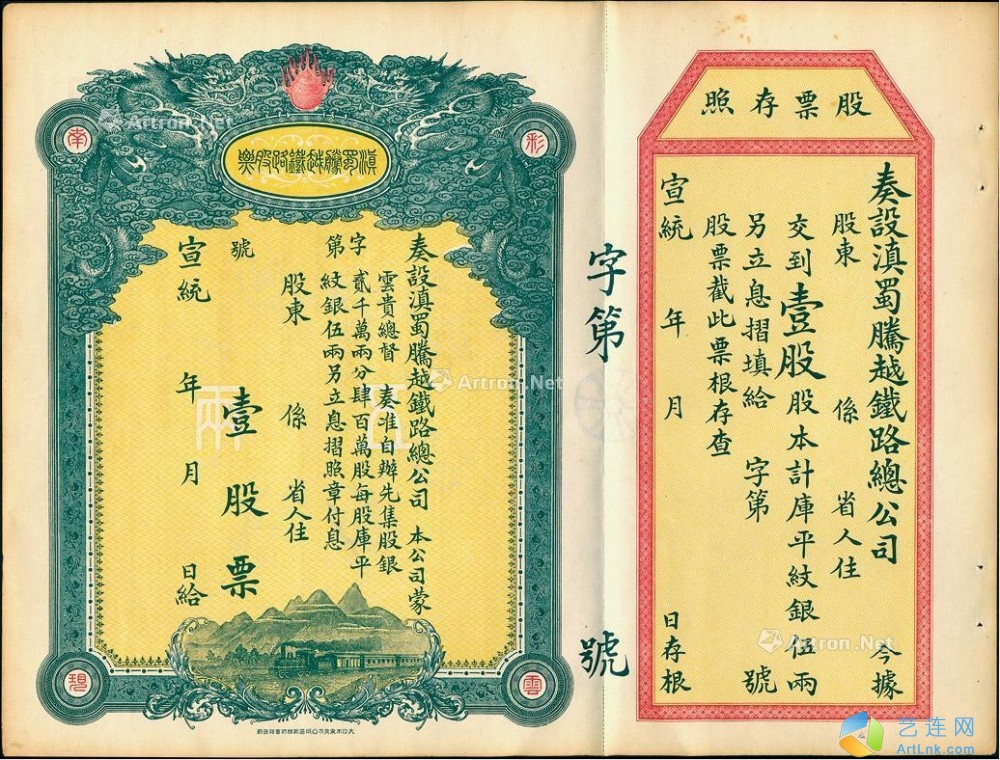 股票存照
奏設滇蜀騰越鐵路總公司 今據
股東 係 省人住
交到壹股股本計庫平紋銀伍兩
另立息摺填給 字第 號
股票截此票根存查
宣統 年 月 日存根
字第 號
滇蜀騰越鐵路股票
彩
南
雲
碧
奏設滇蜀騰越鐵路總公司 本公司蒙
雲貴總督 奏准自辦先集股銀
貳千萬兩分肆百萬股每股庫平
紋銀伍兩另立息摺照章付息
字第 號
股東 係 省人住
壹股票
宣統 年 月 日給
伍兩
Artron.Net
Artron.Net
Artron.Net
艺连网
ArtLnk.com